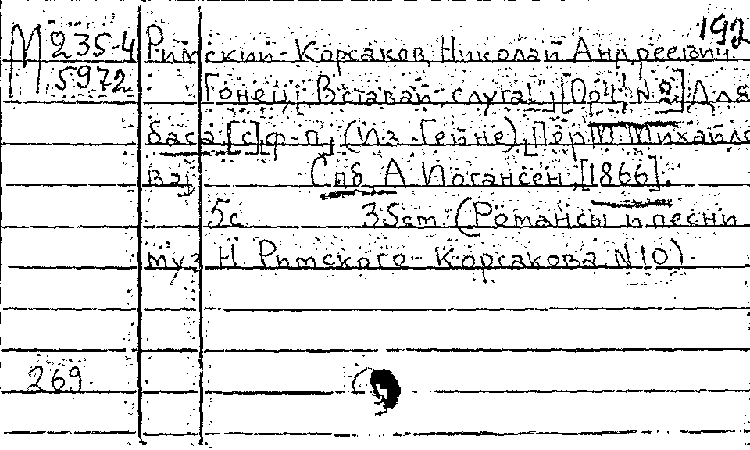 192
М 235-4 Римский-Корсаков, Николай Андреевич.
5972 Гонец. "Вставай слуга!", [Op.4, №2] Для
баса [с] ф-п, (Из Гейне), [Пер. М. Михайло
ва]. Спб, А. Иогансен, [1866].
5с. 35cm (Романсы и песни
муз Н. Римского-Корсакова. N 10).
269